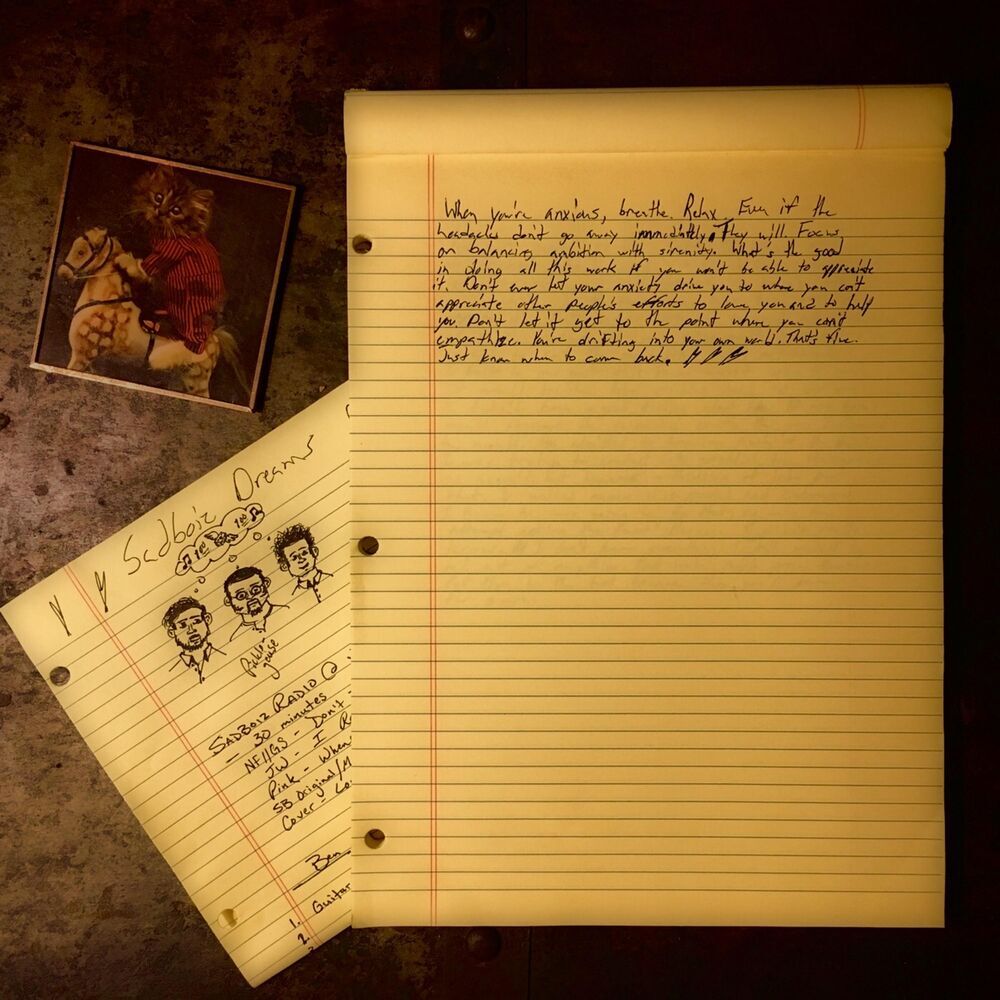 When you're anxious, breathe. Relax. Even if the
headaches don't go away immediately. They will. Focus
on balancing ambition with serenity. What's the good
in doing all this work if you won't be able to appreciate
it. Don't ever let your anxiety drive you to where you can't
appreciate other people's efforts to love you and to help
you. Don't let it get to the point where you can't
empathize. You're drifting into your own world. That's fine.
Just know when to come back.
Sadboiz Dreams
SADBOIZ RADIO @
- 30 minutes
NF//GS - Don't
JW - I
Pink - When
SB Original/M
Cover - Lo
Ben
1. Guitar
2.